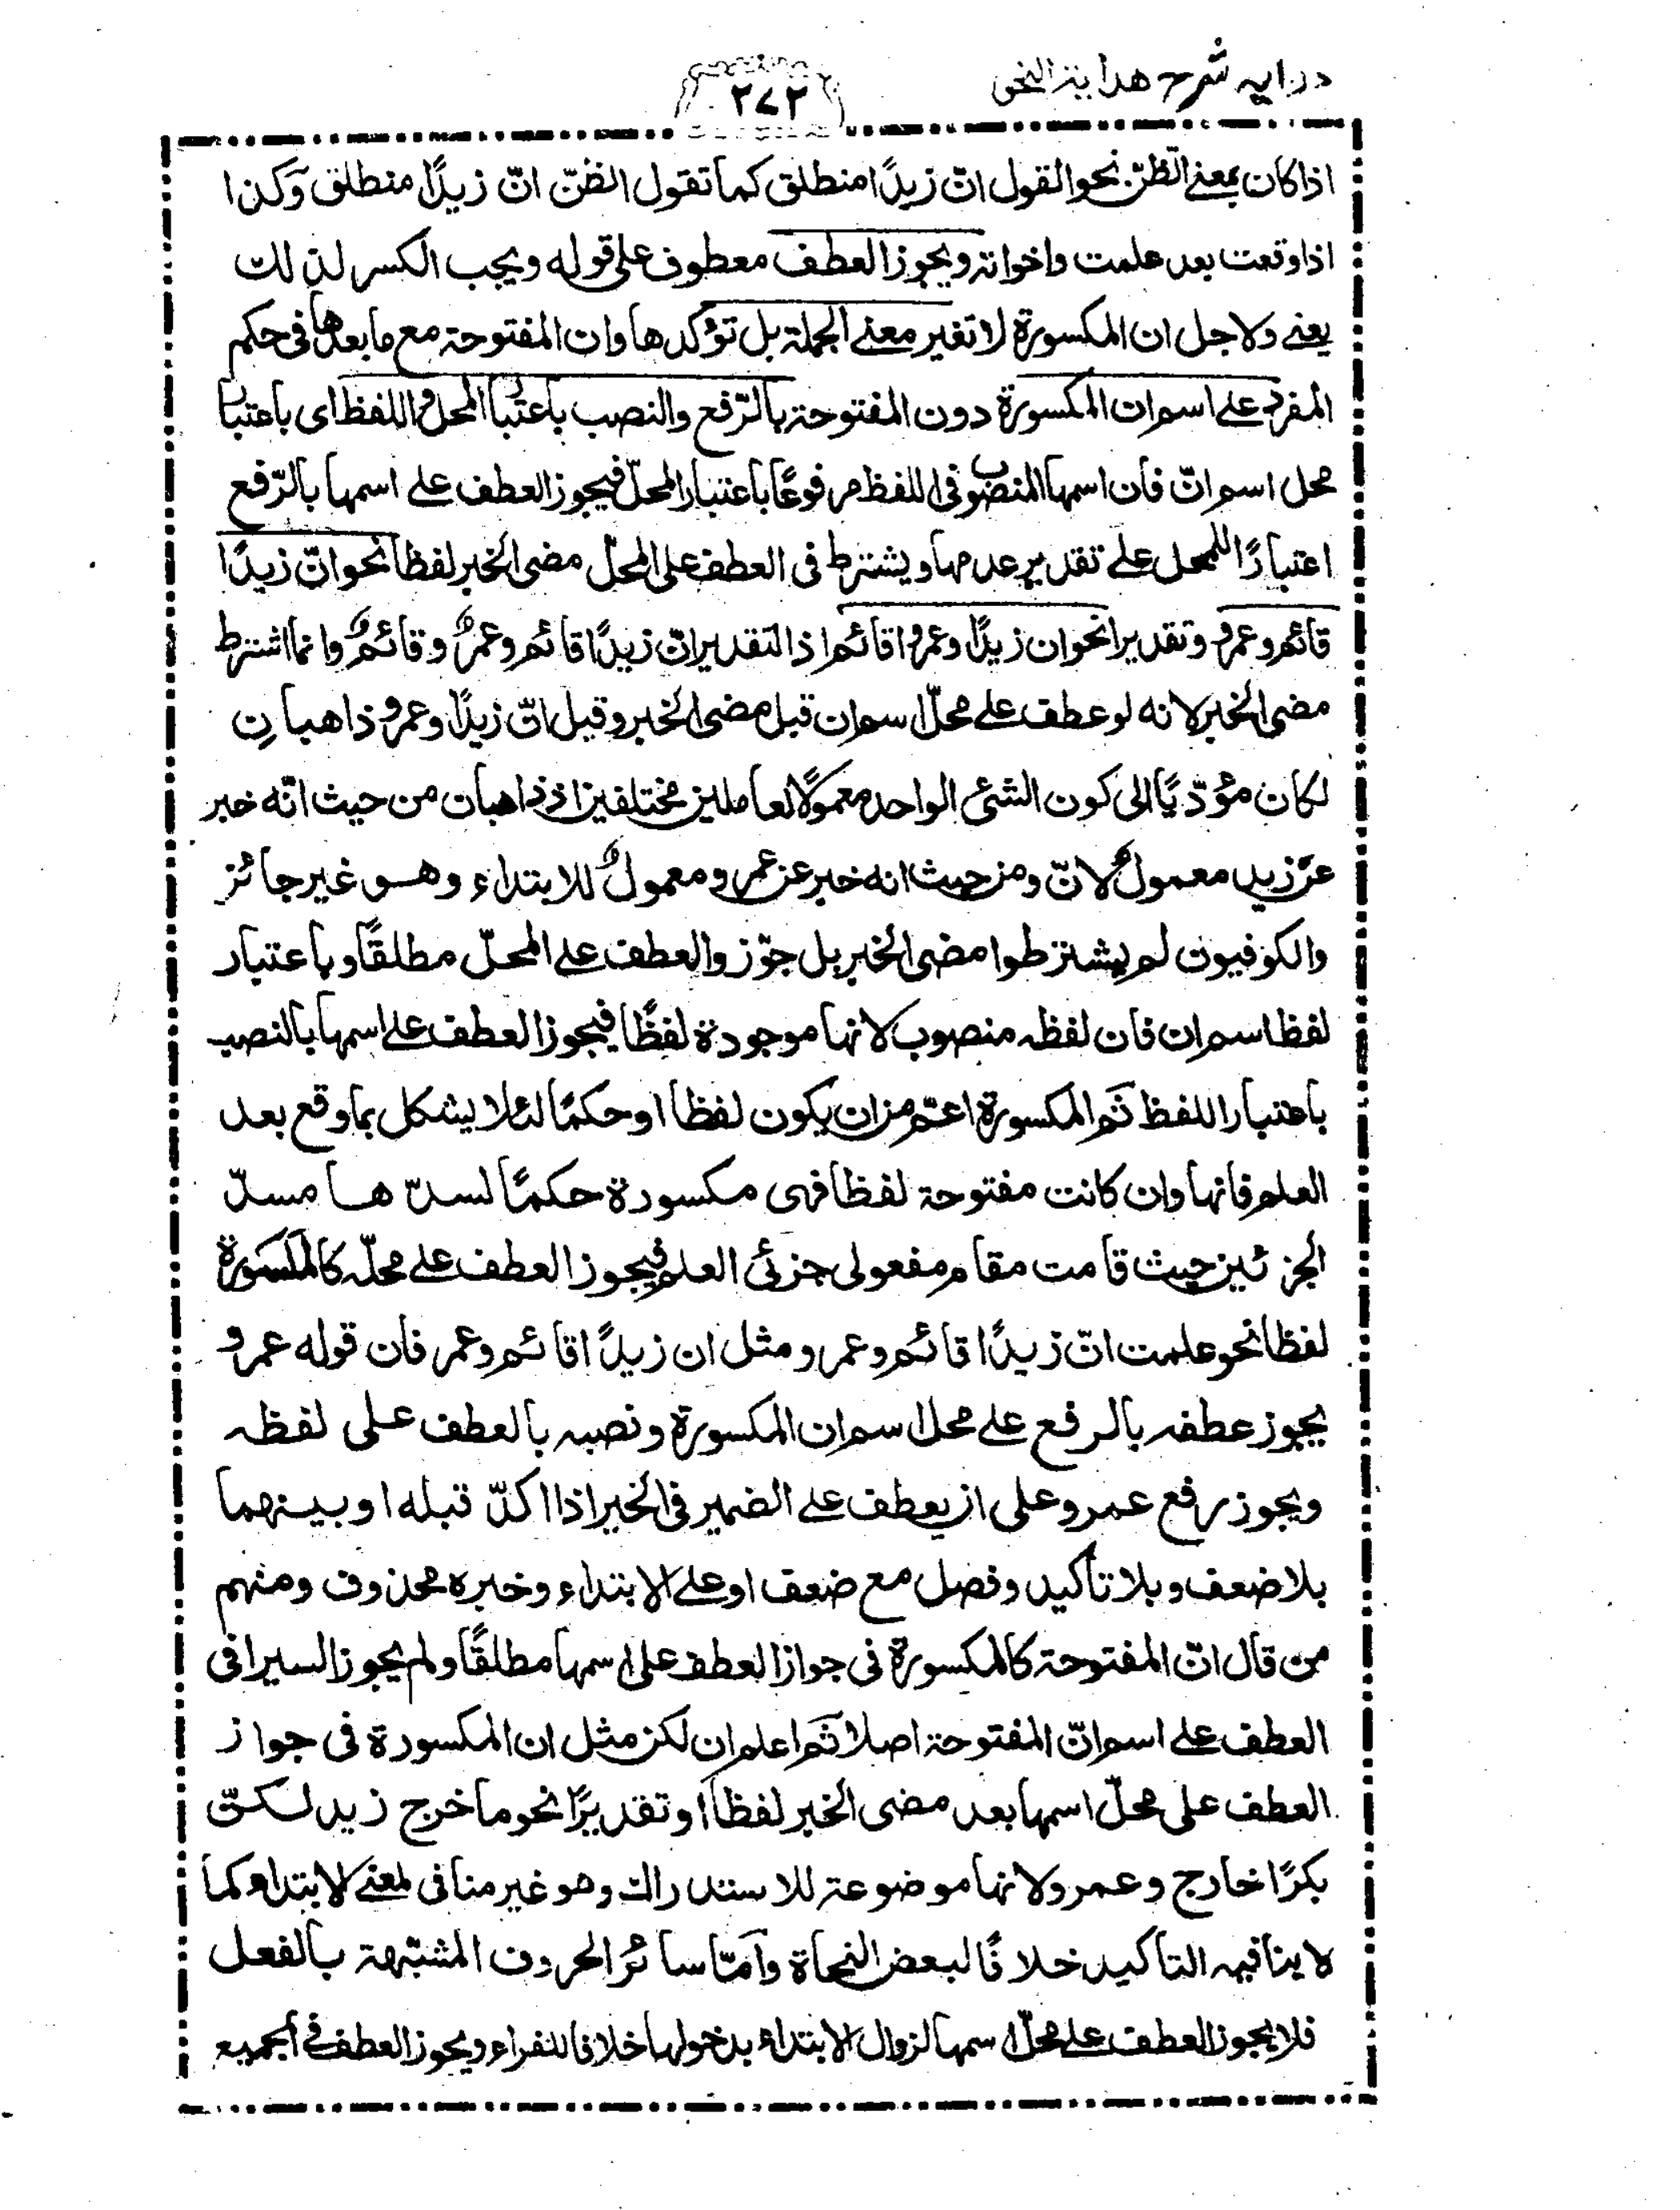 درايه شرح هداية النحو
٢٧٢
اذا كان بمعنے الظنّ نحو القول انّ زيدًا منطلق كما تقول الظنّ انّ زيدًا منطلق وكذا
اذا وقعت بعد علمت واخواته ويجوز العطف معطوف على قوله ويجب الكسر لذلك
يعنے ولاجل ان المكسورة لا تغير معنے الجملة بل تؤكدها وان المفتوحة مع ما بعدها فى حكم
المفرد علے اسم ان المكسورة دون المفتوحة بالرّفع والنصب باعتبار المحل واللفظ اى باعتبار
محل اسم انّ فان اسمها المنصوب فى اللفظ مرفوعًا باعتبار المحلّ فيجوز العطف علے اسمها بالرّفع
اعتبارًا للمحل علے تقدير عدمها ويشترط فى العطف على المحلّ مضى الخبر لفظا نحو انّ زيدًا
قائم وعمرو وتقديرا نحو ان زيدًا وعمرو قائم اذ التقدير انّ زيدًا قائم وعمرٌو وقائمٌ وانما اشترط
مضى الخبر لانه لو عطف علے محلّ اسم ان قبل مضى الخبر وقيل انّ زيدًا وعمرو ذاهبانِ
لكان مؤدّيًا الى كون الشئ الواحد معمولًا لعاملين مختلفين اذ ذاهبان من حيث انّه خبر
عن زيد معمولٌ لانّ ومن حيث انه خبر عن عمرو معمولٌ للابتداء وهو غير جائز
والكوفيون لم يشترطوا مضى الخبر بل جوّزوا العطف علے المحلّ مطلقًا وباعتبار
لفظ اسم ان فان لفظه منصوب لانها موجودة لفظًا فيجوز العطف علے اسمها بالنصب
باعتبار اللفظ ثم المكسورة اعمّ من ان يكون لفظا او حكمًا لئلا يشكل بما وقع بعد
العلم فانها وان كانت مفتوحة لفظا فهى مكسورة حكمًا لسدّها مسدّ
الجزئين حيث قامت مقام مفعولى جزئى العلم فيجوز العطف علے محلّه كالمكسورة
لفظا نحو علمت انّ زيدًا قائم وعمرو ومثل ان زيدًا قائم وعمر فان قوله عمرو
يجوز عطفه بالرفع علے محل اسم ان المكسورة ونصبه بالعطف على لفظه
ويجوز رفع عمرو على ان يعطف علے الضمير فى الخبر اذا اكدّ قبله او بينهما
بلا ضعف وبلا تأكيد وفصل مع ضعف او علے الابتداء وخبره محذوف ومنهم
من قال انّ المفتوحة كالمكسورة فى جواز العطف على اسمها مطلقًا ولم يجوز السيرافى
العطف علے اسم انّ المفتوحة اصلا ثم اعلم ان لكن مثل ان المكسورة فى جواز
العطف على محلّ اسمها بعد مضى الخبر لفظا او تقديرًا نحو ما خرج زيد لكنّ
بكرًا خارج وعمرو لانها موضوعة للاستدراك وهو غير منافى لمعنے الابتداء كما
لا ينافيه التاكيد خلافًا لبعض النحاة وامّا سائر الحروف المشبّهة بالفعل
فلا يجوز العطف علے محلّ اسمها لزوال الابتداء بدخولها خلافا للفراء ويجوز العطف فے الجميع